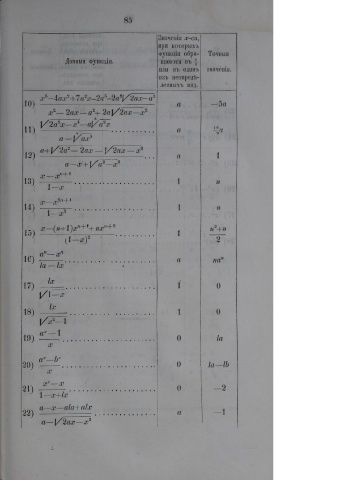 85
Данная функція.
Значенія x-са, при которыхъ функція обращается въ 0/0 или въ одинъ изъ неопредѣленныхъ вид.
Точныя значенія.
10) x³—4ax²+7a²x—2a³—2a²√2ax—a² / x²—2ax—a²+2a√2ax—x² a —5a
a—√ax³
12) a+√2a²—2ax—√2ax—x² / a—x+√a²—x² a 1
13) x—xⁿ⁺¹ / 1—x 1 n
14) 1 n
15) x—(n+1)xⁿ⁺¹+nxⁿ⁺² / (1—x)² 1 n²+n / 2
16) aⁿ—xⁿ / la—lx a naⁿ
17) lx / √1—x 1 0
18) lx / √x²—1 1 0
19) aˣ—1 / x 0 la
20) aˣ—bˣ / x 0 la—lb
21) xˣ—x / 1—x+lx 0 —2
22) a—x—ala+alx / a—√2ax—x² a —1